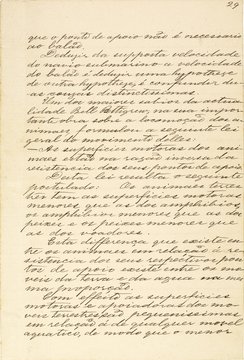 29
que o ponto de apoio não é necessario
ao balão.
Deduzir da supposta velocidade
do navio submarino a velocidade
do balão é deduzir uma hypothese
de outra hypothese, é confundir du-
as cousas distinctissimas.
Um dos maiores sabios da actua-
lidade na sua impor-
tante obra sobre a locomoção dos a-
nimaes formulou a seguinte lei
geral do movimento delles:
— As superficies motoras dos ani-
maes estão na razão inversa da
resistencia dos seus pontos de apoio.
Desta lei resulta o seguinte
postulado: Os animaes terres-
tres tem as superficies motoras
menores que as dos amphibios,
os amphibios menores que as dos
peixes e os peixes menores que
as dos voadores.
Esta differença que existe en-
tre os animaes com relação á re-
sistencia dos seus respectivos pon-
tos de apoio existe entre os mo-
veis da terra e da agua na mes-
ma proporção.
Com effeito as superficies
motoras e apoiadoras dos mo-
veis terrestres são pequenissimas
em relação á de qualquer movel
aquatico, de modo que o menor